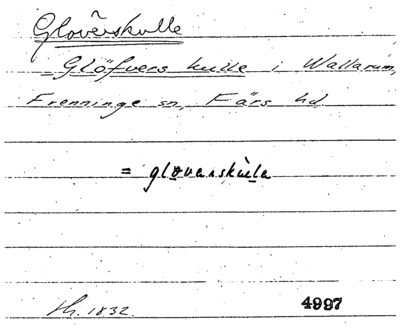 Gloverskulle
Glöfvers kulle i Wallarum,
Frenninge sn, Färs hd
= glovarskula
1832. 4997